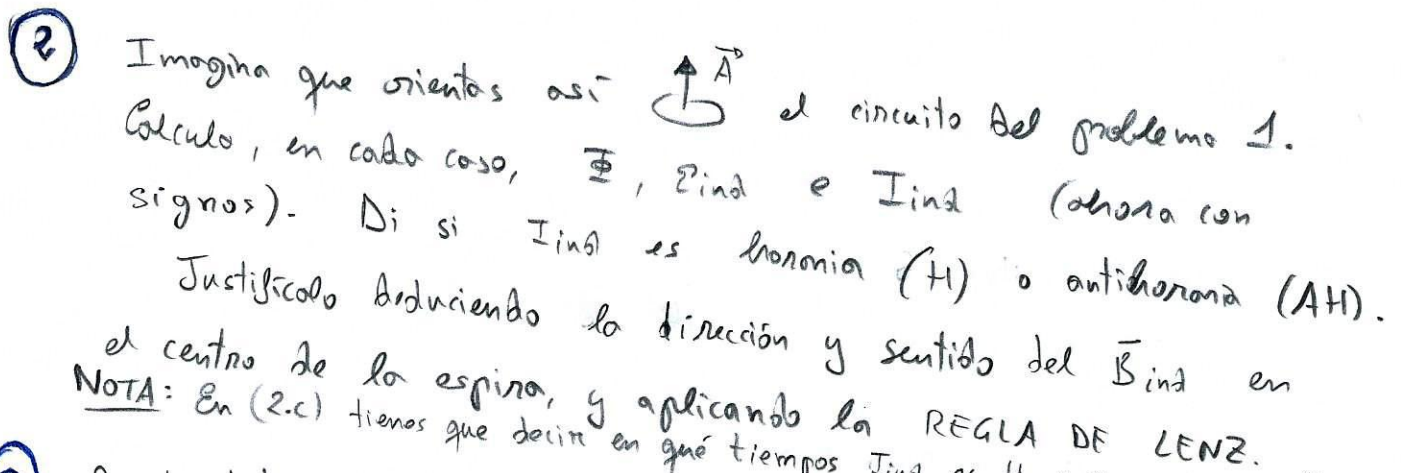 2 Imagina que orientas así A el circuito del problema 1.
Calcula, en cada caso, Φ, εind e Iind (ahora con
signos). Di si Iind es horaria (H) o antihoraria (AH).
Justifícalo deduciendo la dirección y sentido del Bind en
el centro de la espira, y aplicando la REGLA DE LENZ.
NOTA: En (2.c) tienes que decir en qué tiempos Iind